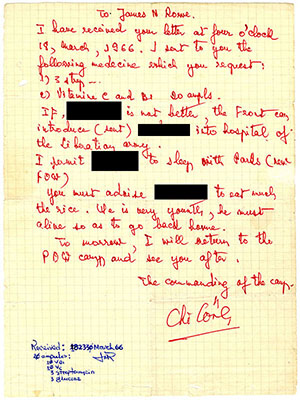 To: James N Rowe.
I have received your letter at four o'clock
18, march, 1966. I sent to you the
following medecine which you request:
1) 3 strep –..
2) Vitamine C and B1 20 ampls.
If, is not better, the Front can
introduce (sent) into hospital of
the libration army.
I permit to sleep with Parks (new
POW)
you must advise to eat much
the rice. He is very youth, he must
alive so as to go back home.
To morrow, I will return to the
POW camp and see you after.
The commanding of the camp.
Chi Công
Received: 182330 March 66
JNR
10 VB1
10 VC
3 Streptomycin
3 Glucose